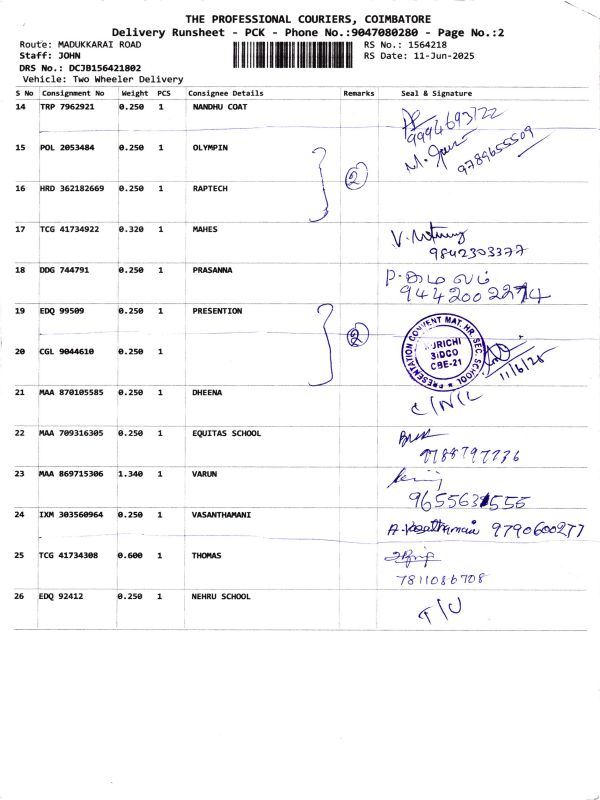 THE PROFESSIONAL COURIERS, COIMBATORE
Delivery Runsheet - PCK - Phone No.:9047080280 - Page No.:2
Route: MADUKKARAI ROAD
Staff: JOHN
DRS No.: DCJB156421802
Vehicle: Two Wheeler Delivery
RS No.: 1564218
RS Date: 11-Jun-2025
S No Consignment No Weight PCS Consignee Details Remarks Seal & Signature
14 TRP 7962921 0.250 1 NANDHU COAT 9994693722
15 POL 2053484 0.250 1 OLYMPIN 9789655509
2
16 HRD 362182669 0.250 1 RAPTECH
17 TCG 41734922 0.320 1 MAHES
9842303377
18 DDG 744791 0.250 1 PRASANNA
19 EDQ 99509 0.250 1 PRESENTION
2
PRESENTATION CONVENT MAT. HR. SEC. SCHOOL
KURICHI
SIDCO
CBE-21
11/6/25
20 CGL 9044610 0.250 1
21 MAA 870105585 0.250 1 DHEENA
22 MAA 709316305 0.250 1 EQUITAS SCHOOL
23 MAA 869715306 1.340 1 VARUN
24 IXM 303560964 0.250 1 VASANTHAMANI A. Vasanthamani 9790600277
25 TCG 41734308 0.600 1 THOMAS
7811086708
26 EDQ 92412 0.250 1 NEHRU SCHOOL